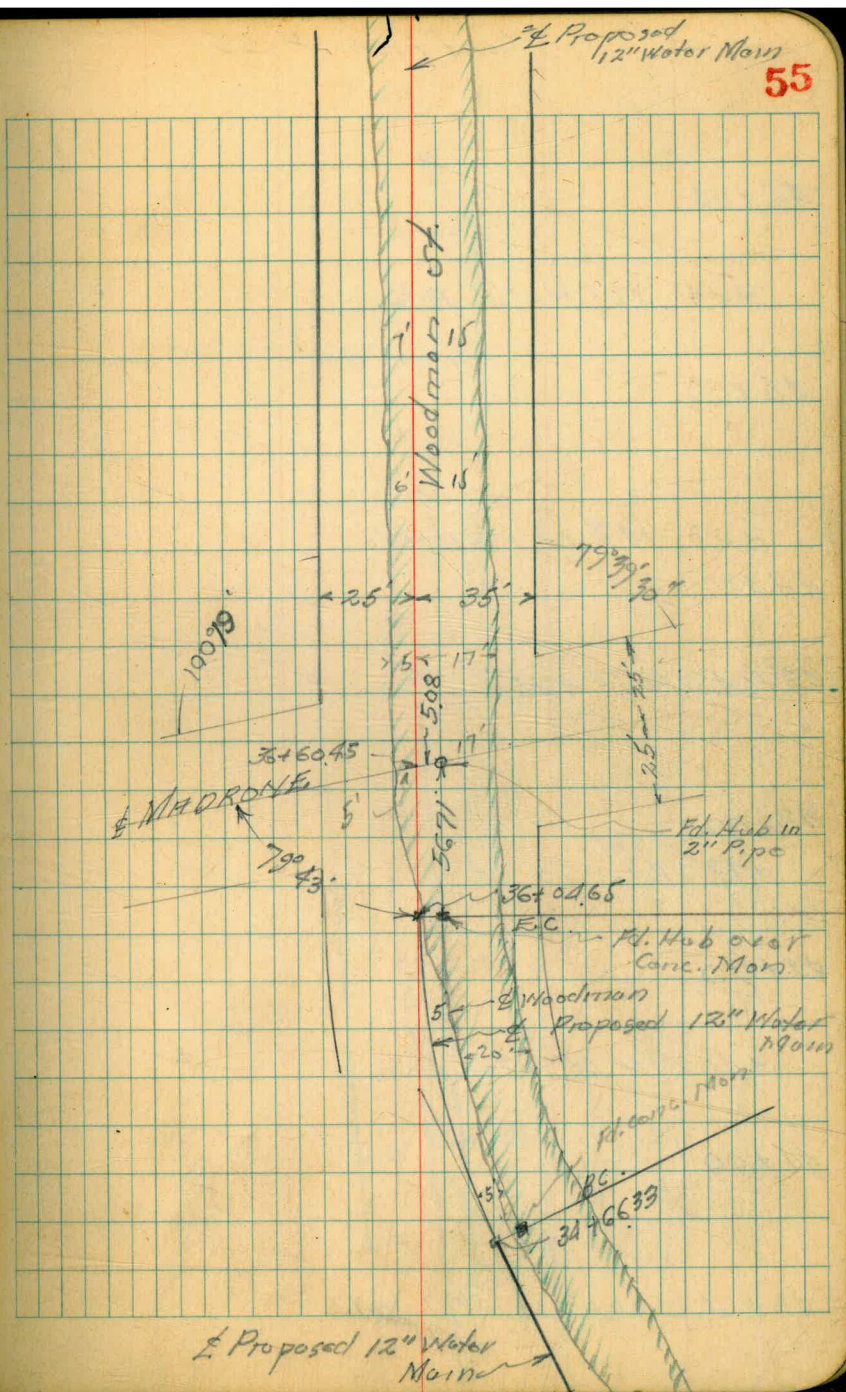 ℄ Proposed
12" Water Main
55
Woodman St.
7' 15
6' 15'
25' 35'
79° 39' 30"
5 17'
5.08'
25 25'
36+60.45
17'
℄ MADRONE
5'
56.71
Fd. Hub in
2" Pipe
79° 43'
36+04.65
E.C.
Fd. Hub over
Conc. Mon
5' ℄ Woodman
℄ Proposed 12" Water
Main
20'
Fd. Conc. Mon
B.C.
5'
34+66.33
℄ Proposed 12" Water
Main